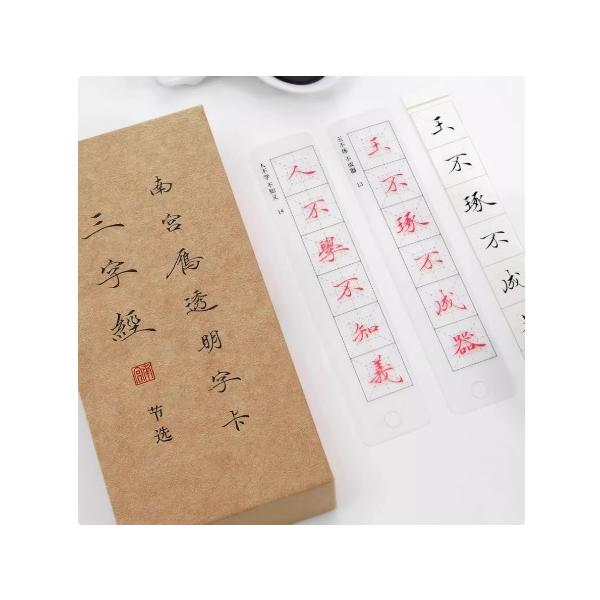 南宮鴈透明字卡
三字經
节选
玉不琢不成
玉不琢不成器
玉不琢 不成器 13
人不學不知義
人不学 不知义 14